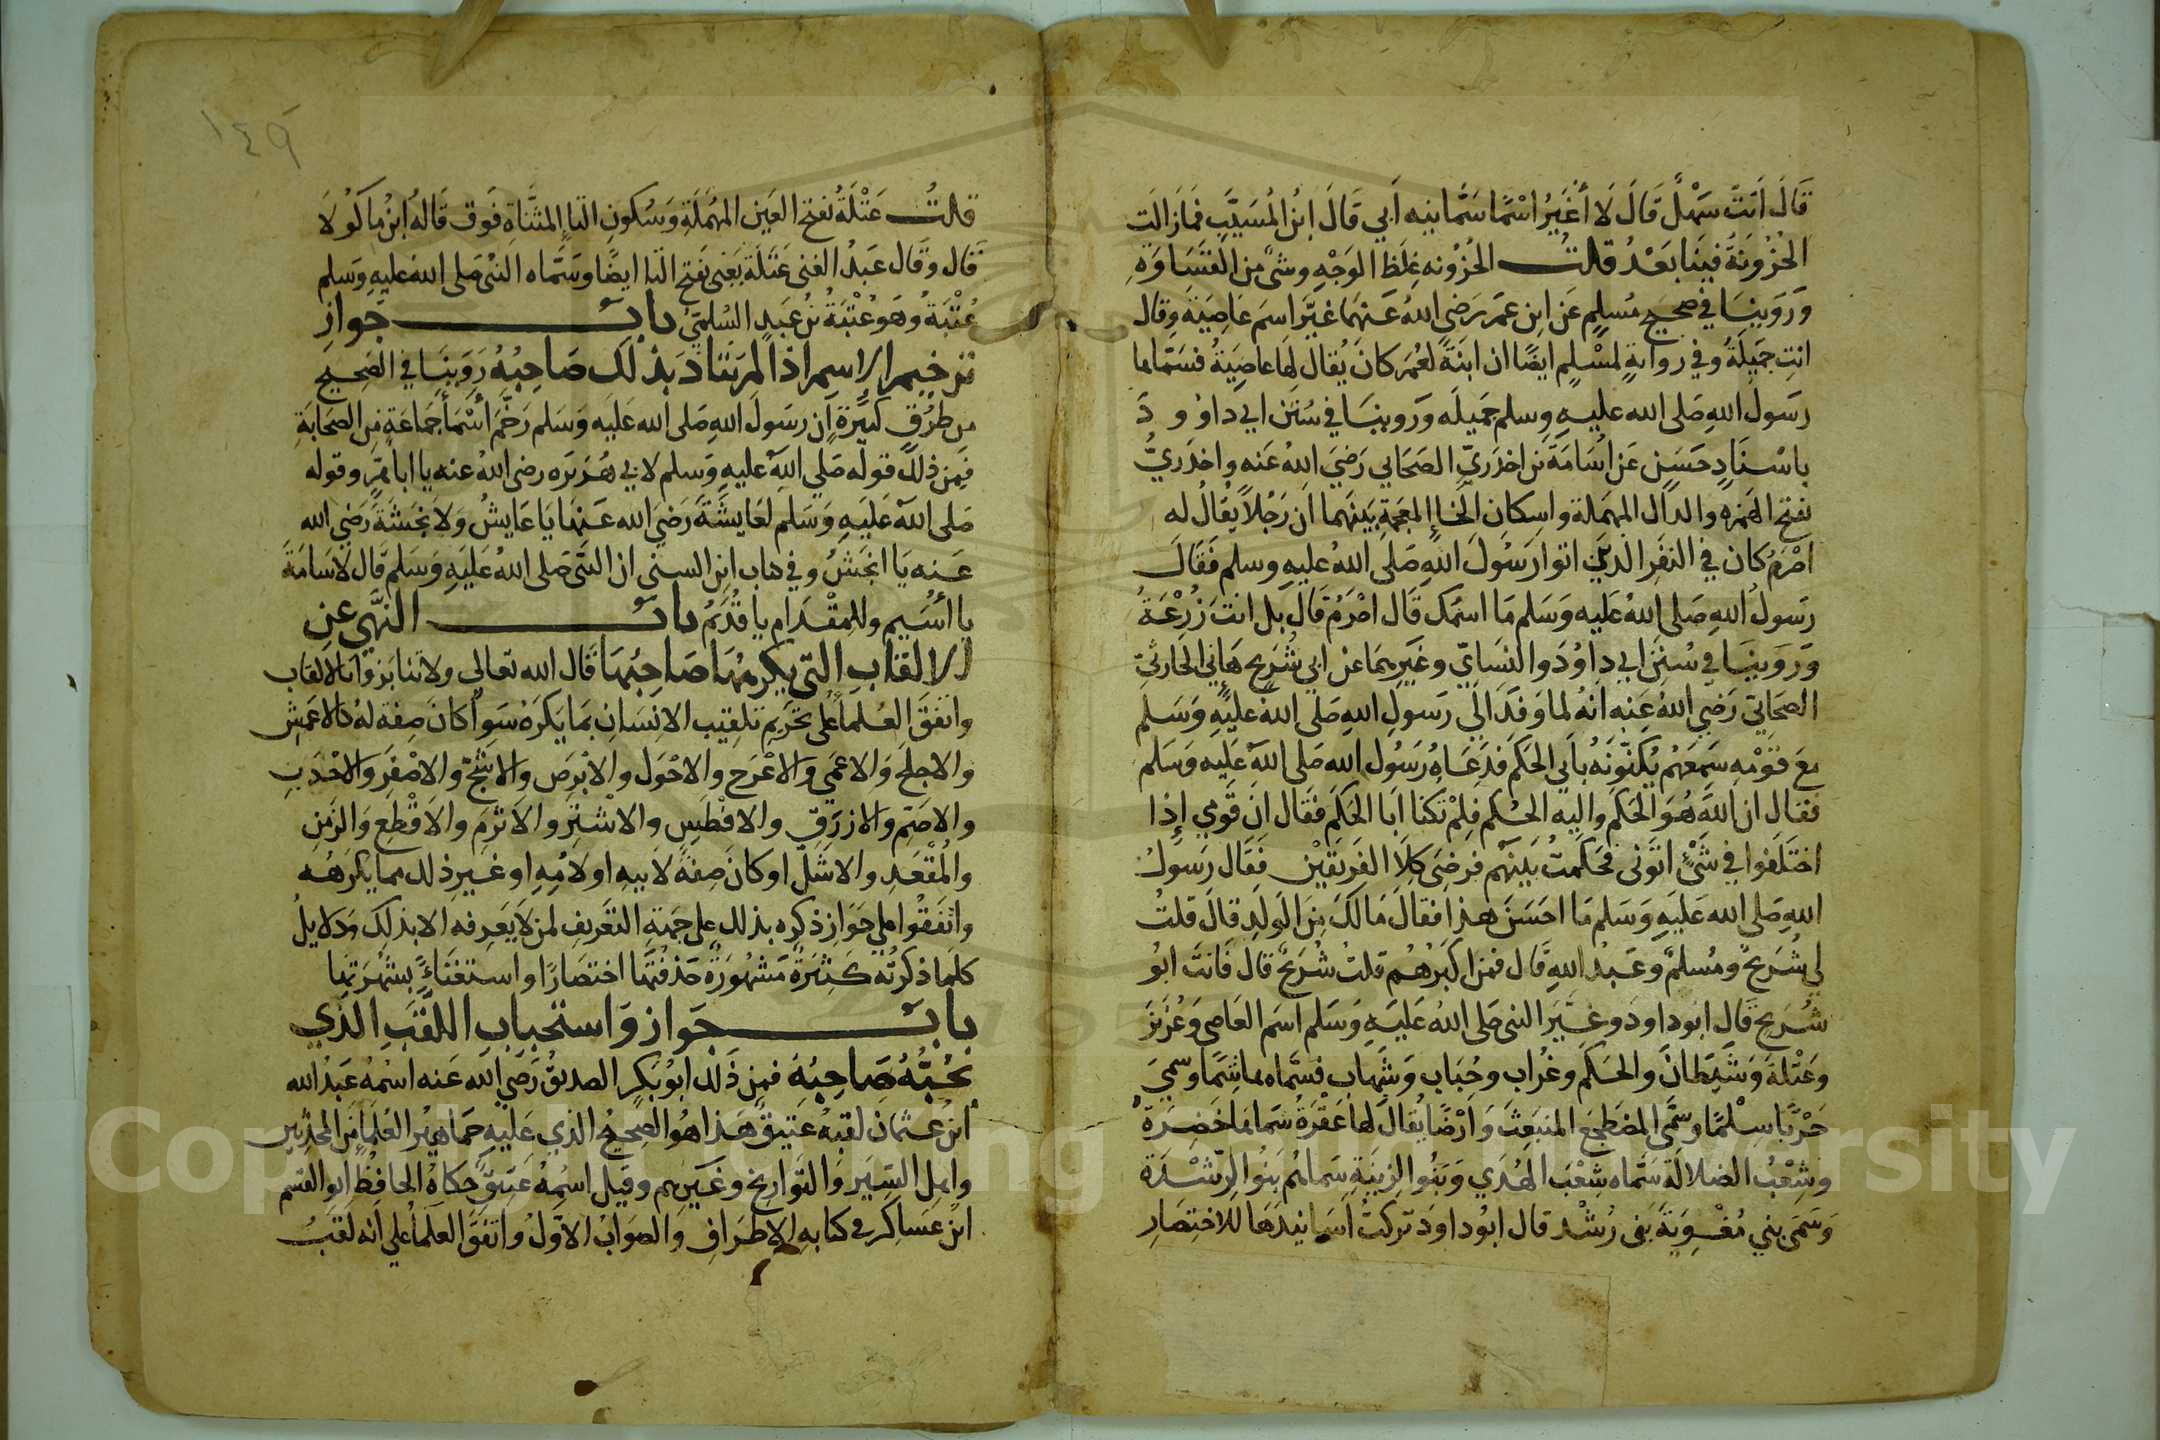 قَالَ اَنتَ سَهْلٌ قَالَ لَا أُغَيّرُ اسْمًا سَمَّانِيه أَبي قَالَ ابْنُ المُسَيَّبِ فمازالت
الحُزُونَةُ فينَا بَعْدُ قلتُ الحُزونه غِلَظ الوَجْهِ وشئٌ من القَسَاوَةِ
وَرَوَينَا في صحيح مُسلمٍ عَن ابن عمَرَ رَضي اللهُ عَنهمَا غيَّرَ اسمَ عَاصِيَة وقال
انتِ جَميلَةُ وفي روايةٍ لمُسْلمٍ ايضًا ان ابنَةً لعُمرَ كانَ يُقال لهَا عاصِيَةُ فسَمّاها
رسَولُ اللهِ صَلى الله عليهِ وسلم جَميلَه وَروينَا في سُنَن ابي داوُ و دَ
باسْنَادٍ حَسَنٍ عَن اُسَامَةَ بن اخدَريّ الصَحَابي رَضيَ اللهُ عَنه واخدَريُّ
بفتح الهَمزه والدال المهمَلة واسكان الخاءِ المعجَمةِ بَينَهما ان رَجُلاً يُقالُ له
اصْرَمُ كان في النفَرِ الذينَ اتوا رَسُولَ اللهِ صَلى اللهُ عليهِ وسلم فَقالَ
رسَولُ اللهِ صَلى اللهُ عَليه وَسَلم مَا اسمُك قَال اصْرَمُ قَالَ بل انتَ زُرْعَةُ
وَرَوَينَا في سُنَن ابي دَاوُدَ والنسَايّ وغَيرهِمَا عن ابي شُرَيح هَانِي الحارثيّ
الصحَابيّ رَضي اللهُ عَنه انهُ لما وَفَدَ اليَ رَسولِ اللهِ صَلى اللهُ عليهِ وَسَلم
مَعَ قَوْمِه سَمِعَهُم يُكَنّونَه بأبي الحَكَم فدَعَاهُ رَسُول الله صَلى اللهُ عَليه وَسَلم
فقال ان اللهَ هُوَ الحكَم واليه الحُكم فلِمْ تَكنا ابَا الحَكَم فَقال انَ قَومي إذا
اختَلفوا في شَئٍ اتَوني فحَكمتُ بَينَهُم فرضيَ كِلَا الفَريقَيْن فَقَال رَسولُ
اللهِ صَلى الله عَليَهِ وَسَلم مَا احسَنَ هذا فقالَ مَا لكَ منَ الوَلدِ قالَ قلتُ
لي شُرَيحٌ ومُسلمٌ وعَبدُ اللهِ قَال فمَن اكبَرُهُم قلتُ شُرَيحٌ قال فانتَ ابُو
شُرَيح قَال ابوداودَ وغَيَّر النبى صَلى اللهُ عَليَهِ وَسَلم اسَم العَاصي وَعُزَيزَ
وَعَتْلةَ وَشَيطَانَ والحَكَم وغُرَاب وحُبَاب وَشِهَاب فسَمَّاه هاشِمًا وسمىَ
حَرْبًا سِلْمًا وسَمَّى المضطجعَ المنبَعِثَ وَارْضًا يُقالُ لهَا عَفْرَةُ سَمّاهَا خَضِرَةَ
وشِعْبُ الضلالة سَمَّاه شِعْبَ الهُدَي وَبَنُوا الزِنيَةِ سَماهُم بَنُوا الرّشْدَة
وَسَمى بني مُغْوِيَةَ بَني رُشْد قال ابوُ داوَد تركتُ اسَانيدَهَا للاختصَارِ
قلتُ عَتْلَةُ بفتح العَين المهمَلَةِ وَسُكونِ التاءِ المثنَّاةِ فَوق قَالهُ ابنُ ماكُولَا
قَال وقَال عَبدُ الغنى عَتَلَةُ يَعني بَفتح التاِ ايضًا وسَمَّاه النبى صَلى اللهُ عليهِ وَسلم
عُتْبَةُ وَهَو عُتْبَةُ بنُ عَبدٍ السُلميُّ بابُ جَوازِ
ترخيم الاسم اذا لم يَتَادَ بذلك صَاحِبُهُ رَوَينَا في الصَحيح
من طُرُقٍ كثيرَةٍ ان رسَولَ اللهِ صَلى الله عَليَه وَسَلم رَخَّمَ أسْمَأَ جَمَاعَةٍ مِن الصَحَابَةِ
فَمِن ذلكَ قوله صَلى اللهُ عليهِ وَسلم لابي هُرَيرَه رضى اللهُ عنه يا اباهِرٍّ وقوله
صَلى اللهُ عَليَهِ وَسَلم لعَايشَةَ رَضيَ الله عَنهَا يَا عَايشُ وَلاَنجَشَةَ رَضي الله
عَنه يَا انجَشُ وفي كتاب ابن السني ان النبّى صَلى اللهُ عَليَهِ وَسَلم قَال لاُسَامَةَ
يا اُسَيم وللمِقْدَام يا قُدَيمُ بابُ النهَّي عِن
الالقَابِ التي يكرهُهَا صَاحِبُهَا قَال الله تعَالي ولا تنابَزوا بالالقاب
واتفَقَ العُلمأ على تحريم تلقيب الانسَانِ بمَا يَكرَهُ سَوأ كانَ صِفة لهُ كالاعمَشِ
والاجلَح وَالاعمَي وَالاعْرَج والاحْوَل والابْرَص والاشجّ والاصْفَر والاحْدَبِ
والاصَمّ والازرَقِ والافْطَسِ والاشْتَر والاَثْرَمَ والاَقْطَع وَالزمِنِ
والمُقْعَدِ والاشَلّ اوكانَ صِفةً لابيهِ اولاُمِهِ اوغيرِ ذلك مما يكرَهُه
واتفَقوُا على جَوَاز ذكره بذلك على جهَةِ التَعريفِ لمن لَا يَعرِفه الا بذلكَ وَدَلايلُ
كلمَا ذكَرتُهُ كَثيرَةٌ مَشهُورَةٌ حَذفتُهَا اختصَارًا واستغنَاءً بشُهْرَتهَا
بابُ جَواز وَاستحبَابِ اللقَبِ الذي
يُحبُّهُ صَاحِبُهُ فمِن ذَلك ابوُ بَكرٍ الصديقُ رَضي الله عَنه اسْمهُ عَبدُ الله
ابنُ عثمانَ لقبهُ عتيقٌ هَذا هوُ الصَحيحُ الذي عَليَهِ جَماهيرُ العُلمَاِ مَن المحدّثين
وَاهِل السّيَر وَالتوَاريخ وَغَيرهِم وقيل اسمُهُ عَتيقٌ حَكَاهُ الحافِظُ ابوالقسم
ابن عَسَاكر في كتابه الاطرَاف والصَوابُ الاوّلُ واتفَقَ العلَمَأُ على انه لقبُ
١٤٩
Copyright © King Saud University